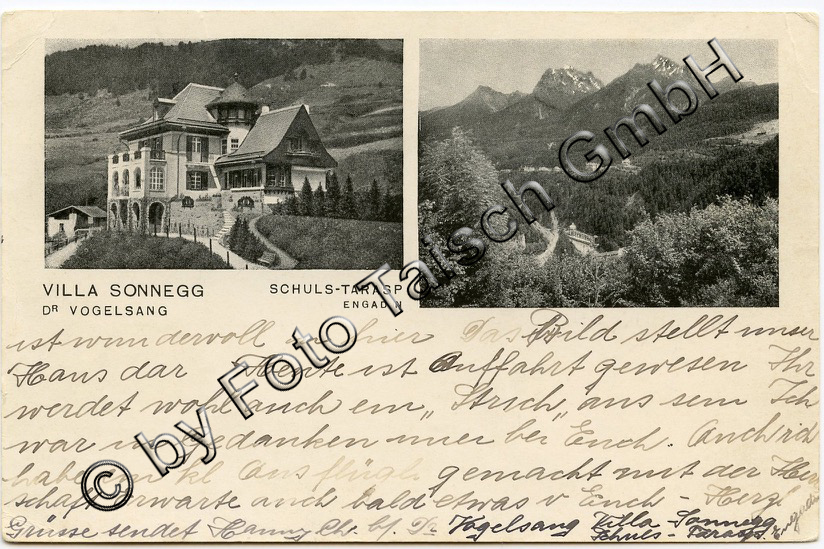 VILLA SONNEGG
DR VOGELSANG
SCHULS-TARASP
ENGADIN
ist wundervoll hier Das Bild stellt unser
Haus dar Heute ist Auffahrt gewesen Ihr
werdet wohl auch ein „Strich„ aus sein Ich
war in Gedanken immer bei Euch. Auch ich
habe kl Ausflüge gemacht mit der Herr
schaft Erwarte auch bald etwas v Euch – Herzl
Grüsse sendet Hanny Chr. b/. Dr Vogelsang Villa Sonnegg
Schuls-Tarasp. Engadin
© by Foto Taisch GmbH